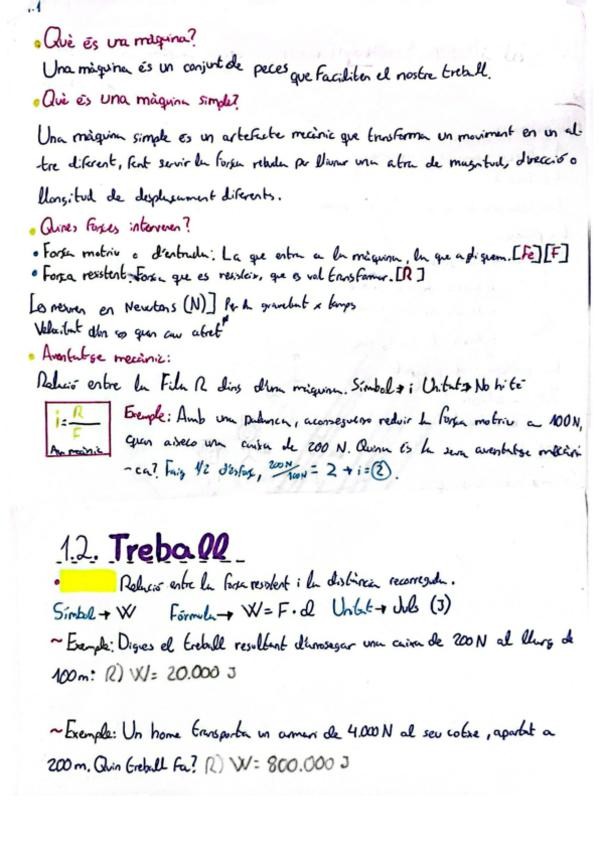 1
• Què és una màquina?
Una màquina és un conjunt de peces que faciliten el nostre treball.
• Què és una màquina simple?
Una màquina simple és un artefacte mecànic que transforma un moviment en un al-
tre diferent, fent servir la força rebuda per lliurar una altra de magnitud, direcció o
llongitud de desplaçament diferents.
• Quines forces intervenen?
• Força motriu o d'entrada: La que entra a la màquina, la que apliquem. [Fe] [F]
• Força resistent: Força que es resisteix, que es vol transformar. [R]
Es mesuren en Newtons (N)] Per la gravetat x temps
Velocitat d'un cos quan cau
• Avantatge mecànic:
Relació entre la F i la R dins d'una màquina. Símbol → i Unitat → No hi té
i = R/F
Av. mecànic
Exemple: Amb una palanca, aconsegueixo reduir la força motriu a 100N,
quan aixeco una caixa de 200 N. Quina és la seva avantatge mecàni
-ca? Faig 1/2 d'esforç, 200N/100N = 2 → i = 2.
1.2. Treball
• Relació entre la força resistent i la distància recorreguda.
Símbol → W Fórmula → W = F · d Unitat → Juls (J)
~ Exemple: Digues el treball resultant d'arrossegar una caixa de 200 N al llarg de
100m: R) W = 20.000 J
~ Exemple: Un home transporta un armari de 4.000 N al seu cotxe, apartat a
200 m. Quin treball fa? R) W = 800.000 J